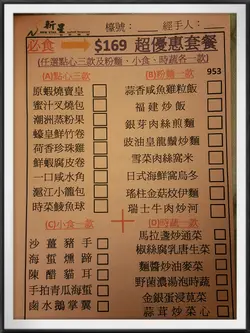 新星
檯號：　　經手人：
必食 $169 超優惠套餐
(任選點心三款及粉麵、小食、時蔬各一款)
(A)點心三款
原蝦燒賣皇
蜜汁叉燒包
潮洲蒸粉果
蠔皇鮮竹卷
荷香珍珠雞
鮮蝦腐皮卷
一口咸水角
滬江小籠包
時菜鯪魚球
(B)粉麵一款 953
蒜香咸魚雞粒飯
福建炒飯
銀芽肉絲煎麵
豉油皇龍鬚炒麵
雪菜肉絲窩米
日式海鮮窩烏冬
瑤柱金菇炆伊麵
瑞士牛肉炒河
(C)小食一款
沙薑豬手
海蜇燻蹄
陳醋貓耳
手拍青瓜海蜇
鹵水鵝掌翼
(D)時蔬一款
馬拉盞炒通菜
椒絲腐乳唐生菜
麵醬炒油麥菜
野菌濃湯泡時蔬
金銀蛋浸莧菜
蒜茸炒菜心